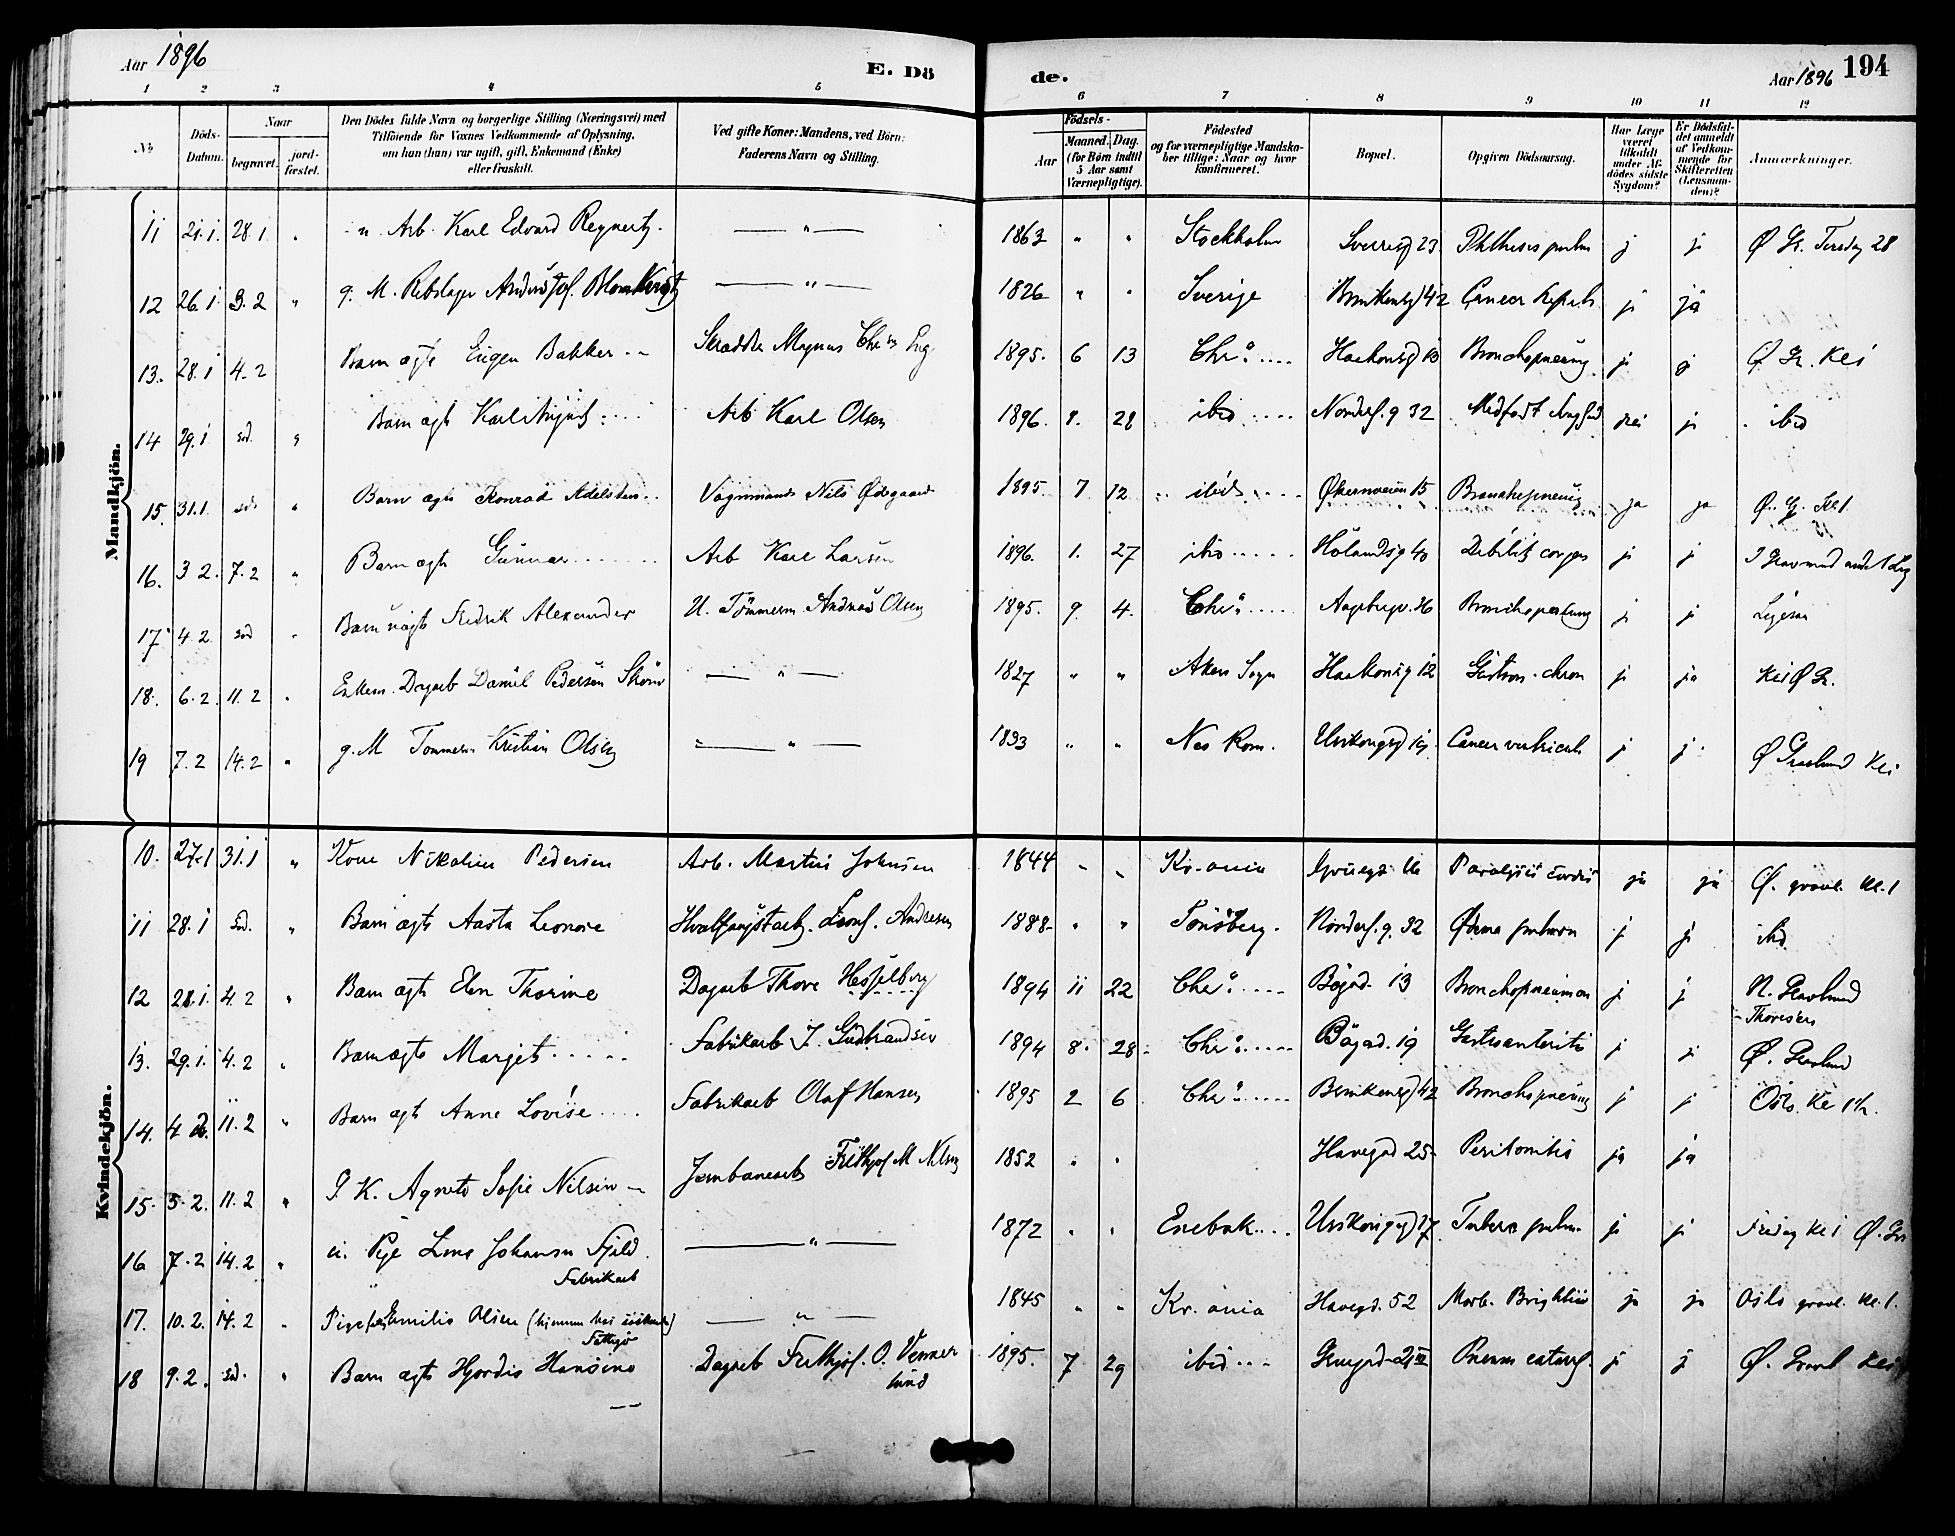 Aar 1896
E. Dö
de.
Aar 1896
194
1 2 3 4 5 6 7 8 9 10 11 12
No
Döds-Datum.
Naar
begravet.
jord-fæstet.
Den Dödes fulde Navn og borgerlige Stilling (Næringsvei) med
Tilföiende for Voxnes Vedkommende af Oplysning,
om han (hun) var ugift, gift, Enkemand (Enke)
eller fraskilt.
Ved gifte Koner: Mandens, ved Börn:
Faderens Navn og Stilling.
Födsels-
Aar
Maaned. Dag.
(for Börn indtil
5 Aar samt
Værnepligtige).
Födested
og for værnepligtige Mandska-
ber tillige: Naar og hvor
konfirmeret.
Bopæl.
Opgiven Dödsaarsag.
Har Læge
været
tilkaldt
under Af-
dödes sidste
Sygdom?
Er Dödsfal-
det anmeldt
af Vedkom-
mende for
Skifteretten
(Lensman-
den)?
Anmærkninger.
Mandkjön.
11 21.1. 28.1 " u. Arb. Karl Edvard Regnertz. — " — 1863 " " Stockholm Sverresgd 23 Phthisis pulm j j Ø Gr. Tirsdag 28
12 26.1 3.2 " g. M. Rebslager Anders Jos. Blomkvist — " — 1826 " " Sverige 42 Cancer hepatis j ja
13. 28.1 4.2 Barn ægte Eugen Bakker Skrædder Magnus 1895. 6 13 Chra.... Haakonsgd 13 Bronchopneumo j j Ø Gr. Kl 1
14 29.1 sod. " Barn ægte Karl Arb Karl Olsen 1896. 1. 28 ibid .... Nordref. g 32 Medfødt nei j ibid
15. 31.1 sod. " Barn ægte Konrad Adelsten.. Vognmand Nils Ødegaard 1895. 7 12 ibid .... Økernveien 15 Bronchopneumo ja ja Ø. G. Kl 1.
16. 3 2. 7.2 " Barn ægte Gunnar....... Arb Karl Larsen 1896. 1. 27 ibid ..... Hølandsg 40 Debilitas corpor j j I Grav med andet Lig
17 4.2 sod " Barn uægte Fredrik Alexander U. Tömmerm Andreas Olsen 1895. 9. 4. Chra..... 36 j j
18. 6.2. 11.2 " Enkem. Dagarb Daniel Pedersen — " — 1827 " " Akers Sogn Haakonsg 12 chron j ja Kl 1 Ø Gr.
19 7.2 14.2 " g. M Tömmerm Kristian Olsen — " — 1833 " " Nes Rom. Urskougsgd 19 Cancer ventriculi j j. Ø Gravlund Kl 1
Kvindekjön.
10. 27.1 31.1 " Kone Nikoline Pedersen Arb. Martin Johnsen 1844 " " Kr.ania Paralysis cordis ja ja Ø. gravl. kl. 1
11 28.1 sod. " Barn ægte Aasta Leonore Hvalfangstarb. Andresen 1888. " " Tönsberg. Nordref. g. 32 Ødema pulmon j j ibid
12 28.1. 4.2 " Barn ægte Elen Thorine Dagarb Thore Hesselberg 1894 11 22 Chra.... Bögad. 13 Bronchopneumon j j N. Gravlund
- Thoresen
13. 29.1. 4.2 " Barn ægte Margit..... Fabrikarb J. Gudbrandsen 1894 8. 28. Chra..... Bögad. 19 Gastroenteritis j j Ø. Gravlund
14. 4 2. 11.2 " Barn ægte Anne Lovise.... Fabrikarb Olaf Hansen 1895 2 6 Chra..... 42 Bronchopneumo j j Oslo. Kl 1½.
15. 5.2. 11.2 " G. K. Agnete Sofie Nilsen — Jernbanearb Frithjof M Nilsen 1852 " " Havegad 25. Peritonitis ja ja
16 7.2 14.2 " u. Pige Lina Johansen Fjeld.
Fabrikarb — " — 1872 " " Enebak... Urskougsgd 17 Tuberc pulm. j j Fredag Kl 1 Ø. Gr
17. 10.2. 14.2 " Pige Emilie Olsen (hjemme hos
— " — 1845 " " Kr. ania Havegd. 52 Morb. Brightii ja ja Oslo gravl. kl. 1.
18 9.2. sod. " Barn ægte Hjördis Hansine Dagarb Frithjof. O. Venner
lund 1895. 7 29 ibid ... j j Ø. Gravl Kl 1